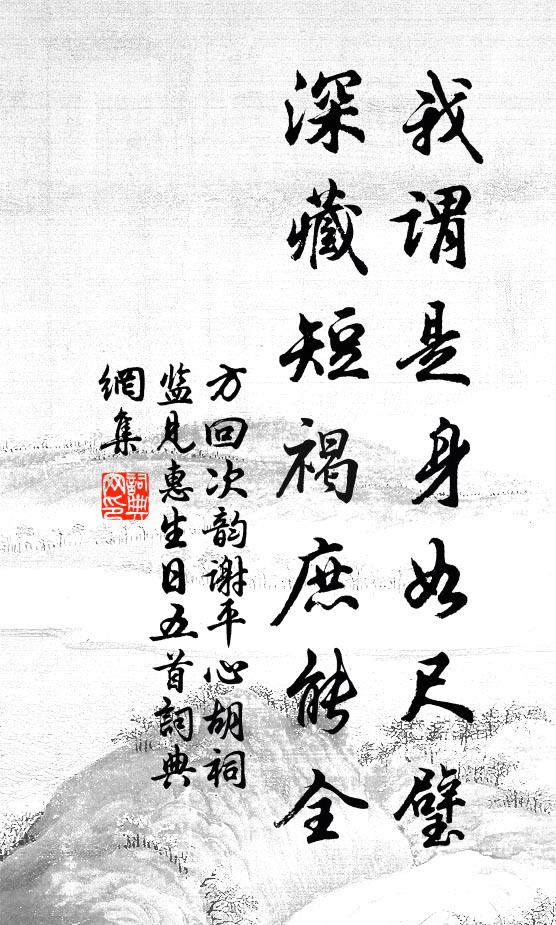 我谓是身如尺璧
深藏短褐庶能全
方回次韵谢平心胡祠
监见惠生日五首詞典
網集
詞典
网印